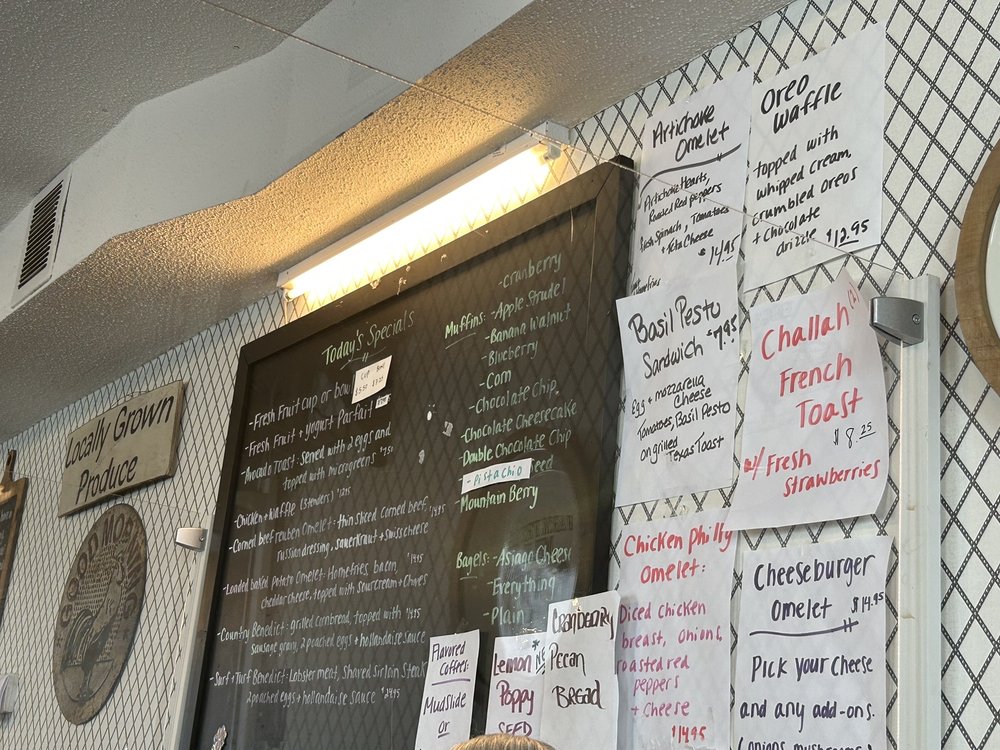 Locally Grown
Produce
GOOD MORNING
Today's Specials
-Fresh Fruit cup or bowl
CUP Bowl
-Fresh Fruit + Yogurt Parfait
-Avocado Toast: Served with 2 eggs and
topped with microgreens
-Chicken + Waffle (3 tenders)
-Corned beef reuben omelet: thin sliced corned beef,
russian dressing, sauerkraut + swiss cheese
-Loaded baked potato omelet: Homefries, bacon,
cheddar cheese, topped with sour cream + chives
-Country Benedict: grilled cornbread, topped with
sausage gravy, 2 poached eggs + hollandaise sauce
-Surf + Turf Benedict: Lobster meat, Shaved Sirloin Steak
2 poached eggs + hollandaise sauce $24.95
Muffins: -cranberry
-Apple Strudel
-Banana Walnut
-Blueberry
-Corn
-Chocolate Chip
-Chocolate Cheesecake
-Double Chocolate Chip
-Pistachio
-Mountain Berry
Bagels: -Asiago Cheese
-Everything
-Plain
Flavored
Coffees:
Mudslide
or
Lemon
Poppy
SEED
Cranberry
Pecan
Bread
Artichoke
Omelet
Artichoke Hearts,
Roasted Red peppers
fresh spinach, Tomatoes
+ Feta Cheese
$14.95
Oreo
Waffle
topped with
whipped cream,
crumbled oreos
+ chocolate
drizzle $12.95
Basil Pesto
Sandwich $7.95
Egg + mozzarella
Cheese
Tomatoes, Basil Pesto
on grilled Texas Toast
Challah (2)
French
Toast
$8.25
w/ Fresh
Strawberries
Chicken Philly
Omelet:
Diced chicken
breast, onions,
roasted red
peppers
+ cheese
$14.95
Cheeseburger
Omelet $14.95
Pick your cheese
and any add-ons.